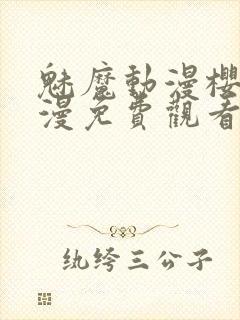 魅魔動漫櫻
漫免費觀看
纨绔三公子